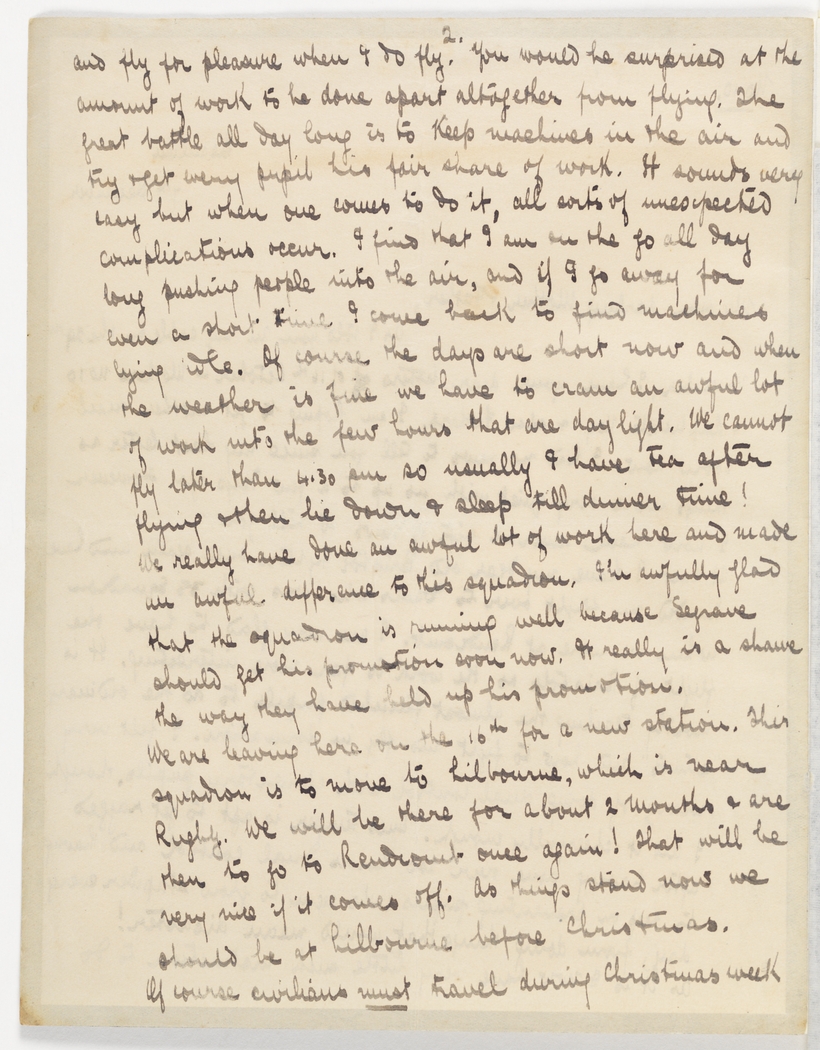 2.
and fly for pleasure when I do fly. You would be surprised at the
amount of work to be done apart altogether from flying. The
great battle all day long is to keep machines in the air and
try & get every pupil his fair share of work. It sounds very
easy but when one comes to do it, all sorts of unexpected
complications occur. I find that I am on the go all day
long pushing people into the air, and if I go away for
even a short time I come back to find machines
lying idle. Of course the days are short now and when
the weather is fine we have to cram an awful lot
of work into the few hours that are daylight. We cannot
fly later than 4.30 pm so usually I have tea after
flying & then lie down & sleep till dinner time!
We really have done an awful lot of work here and made
an awful difference to this squadron. I'm awfully glad
that the squadron is running well because Segrave
should get his promotion soon now. It really is a shame
the way they have held up his promotion.
We are leaving here on the 16th for a new station. This
squadron is to move to Lilbourne, which is near
Rugby. We will be there for about 2 months & are
then to go to Rendcomb once again! That will be
very nice if it comes off. As things stand now we
should be at Lilbourne before Christmas.
Of course civilians must travel during Christmas week